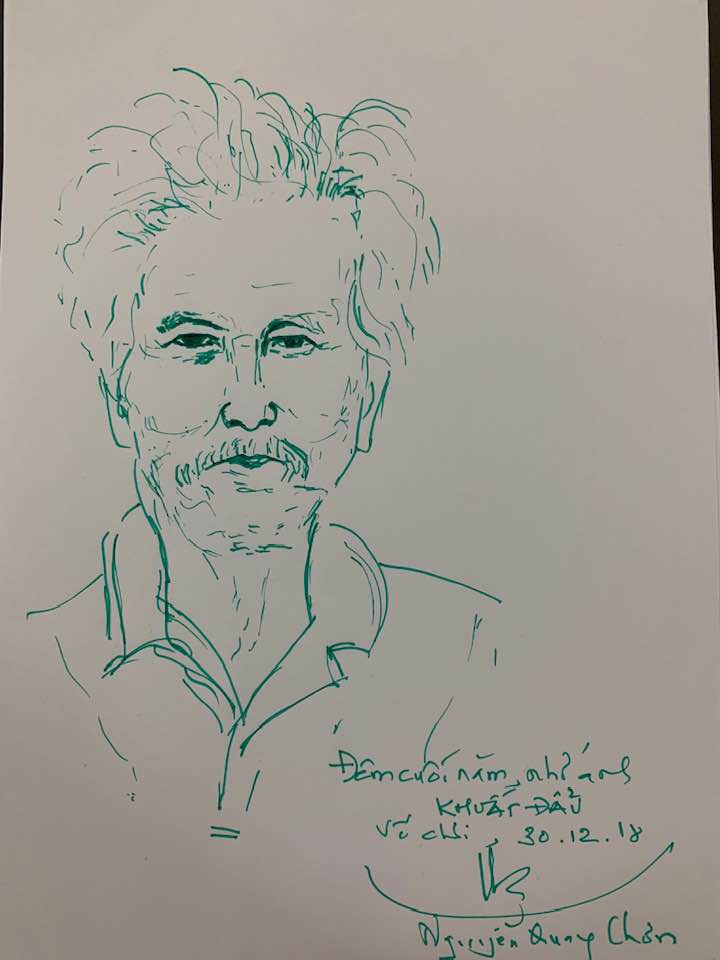 Đêm cuối năm, nhớ anh
KHUẤT ĐẨU
Vẽ chơi, 30.12.18
Nguyễn Quang Chơn